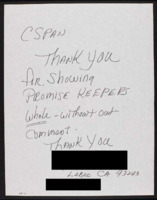 CSPAN
THANK YOU
for Showing
PROMISE KEEPERS
Whole - without cut
Comment.
THANK YOU
CA 93243